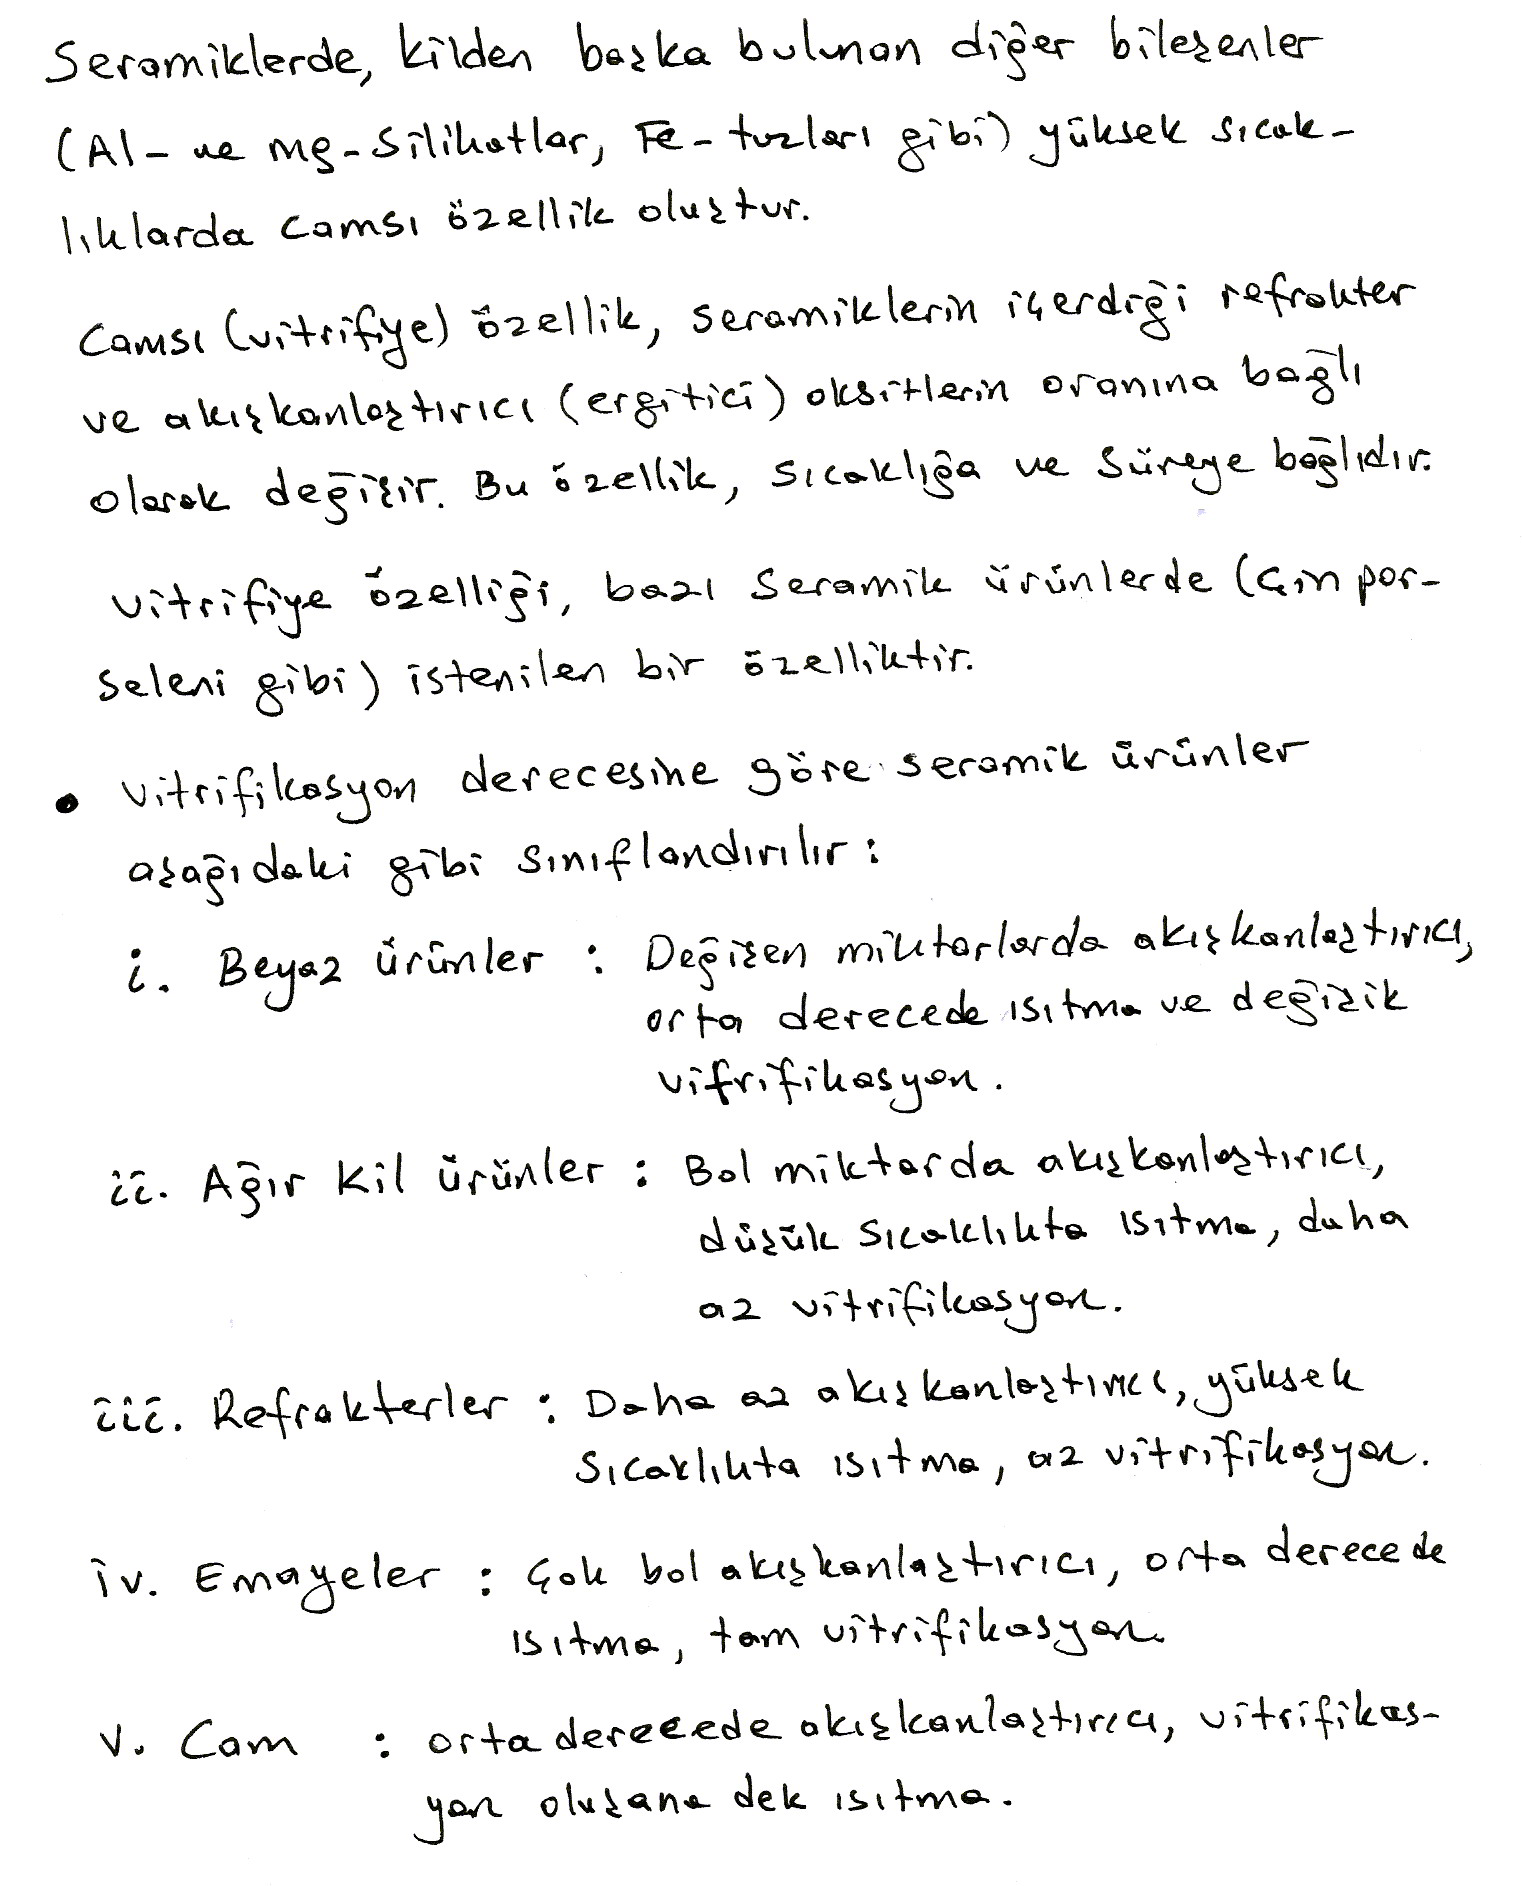 Seramiklerde, kilden başka bulunan diğer bileşenler
(Al- ve Mg-Silikatlar, Fe-tuzları gibi) yüksek sıcak-
lıklarda camsı özellik oluştur.
Camsı (vitrifiye) özellik, seramiklerin içerdiği refrakter
ve akışkanlaştırıcı (ergitici) oksitlerin oranına bağlı
olarak değişir. Bu özellik, sıcaklığa ve süreye bağlıdır.
Vitrifiye özelliği, bazı seramik ürünlerde (Çin por-
seleni gibi) istenilen bir özelliktir.
• Vitrifikasyon derecesine göre seramik ürünler
aşağıdaki gibi sınıflandırılır:
i. Beyaz ürünler : Değişen miktarlarda akışkanlaştırıcı,
orta derecede ısıtma ve değişik
vifrifikasyon.
ii. Ağır Kil ürünler : Bol miktarda akışkanlaştırıcı,
düşük sıcaklıkta ısıtma, daha
az vitrifikasyon.
iii. Refrakterler : Daha az akışkanlaştırıcı, yüksek
sıcaklıkta ısıtma, az vitrifikasyon.
iv. Emayeler : Çok bol akışkanlaştırıcı, orta derecede
ısıtma, tam vitrifikasyon.
v. Cam : orta derecede akışkanlaştırıcı, vitrifikas-
yon oluşana dek ısıtma.